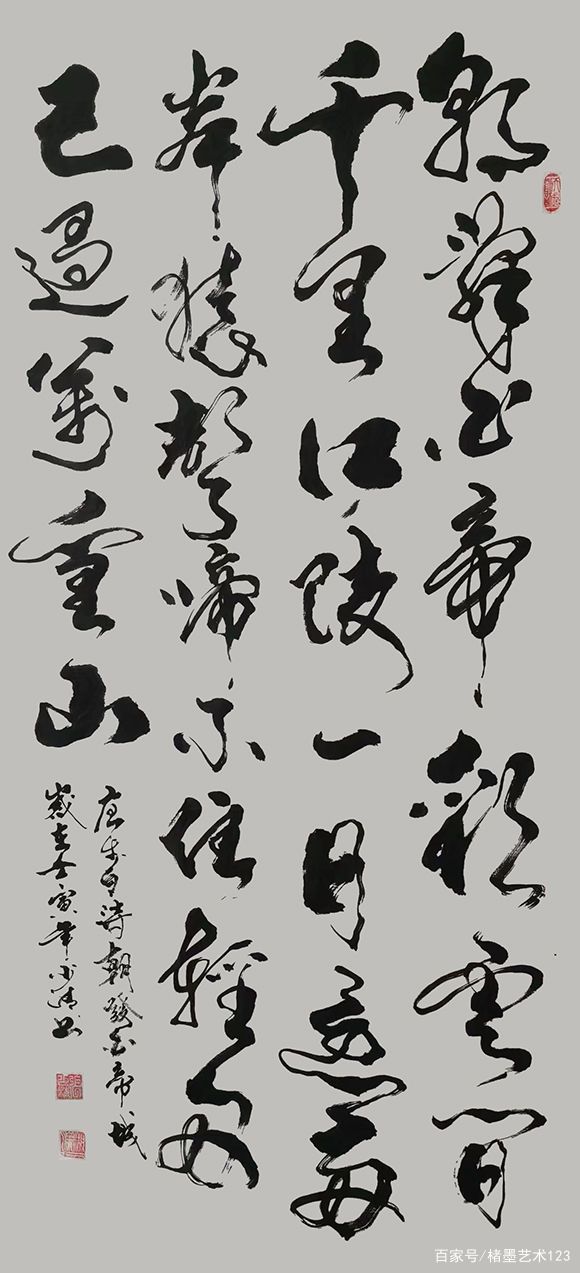 朝辭白帝彩雲間
千里江陵一日還兩
岸猿聲啼不住輕舟
已過萬重山
唐李白詩朝發白帝城
歲在壬寅年书
百家号/楮墨艺术123